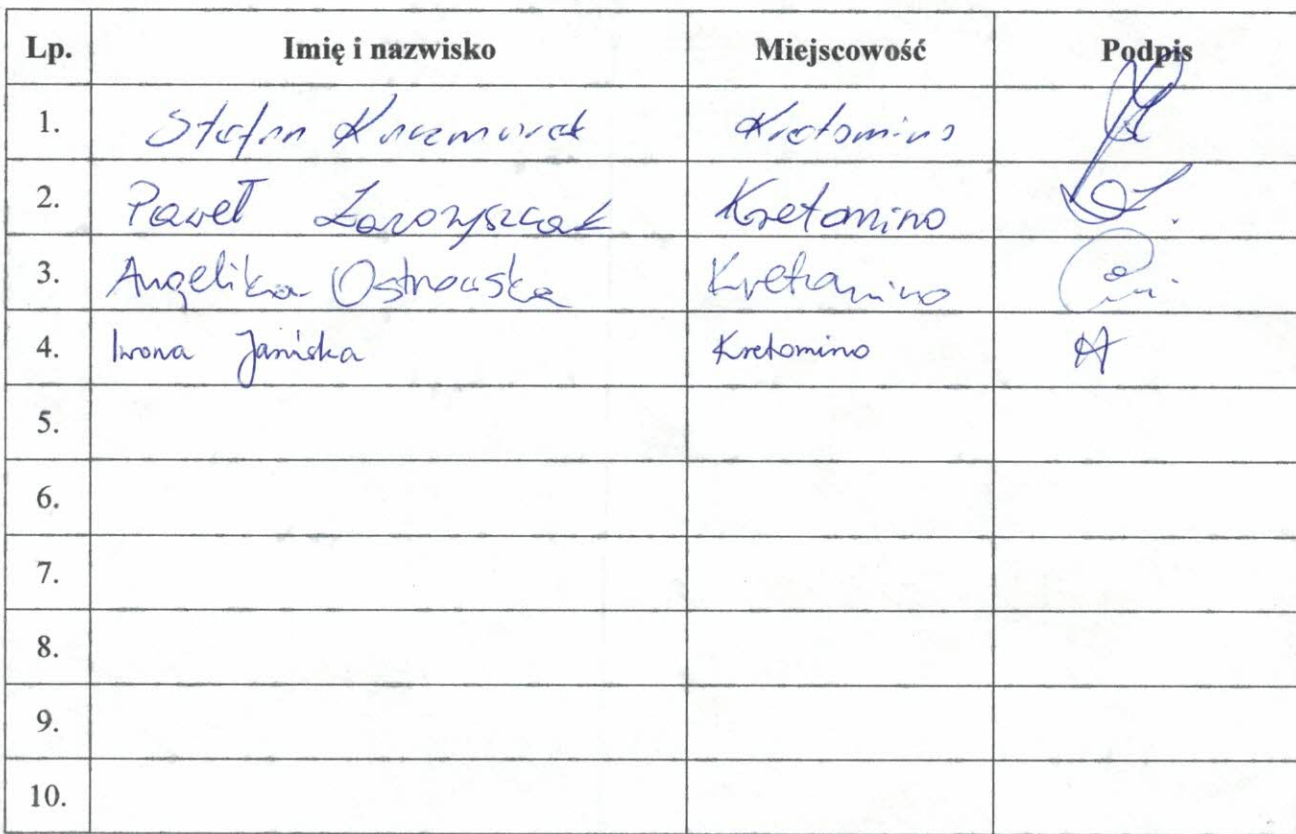 Lp. Imię i nazwisko Miejscowość Podpis
1. Stefan Kaczmarek Kretomino
2. Paweł Kretomino
3. Angelika Ostrowska Kretomino
4. Iwona Kretomino
5.
6.
7.
8.
9.
10.